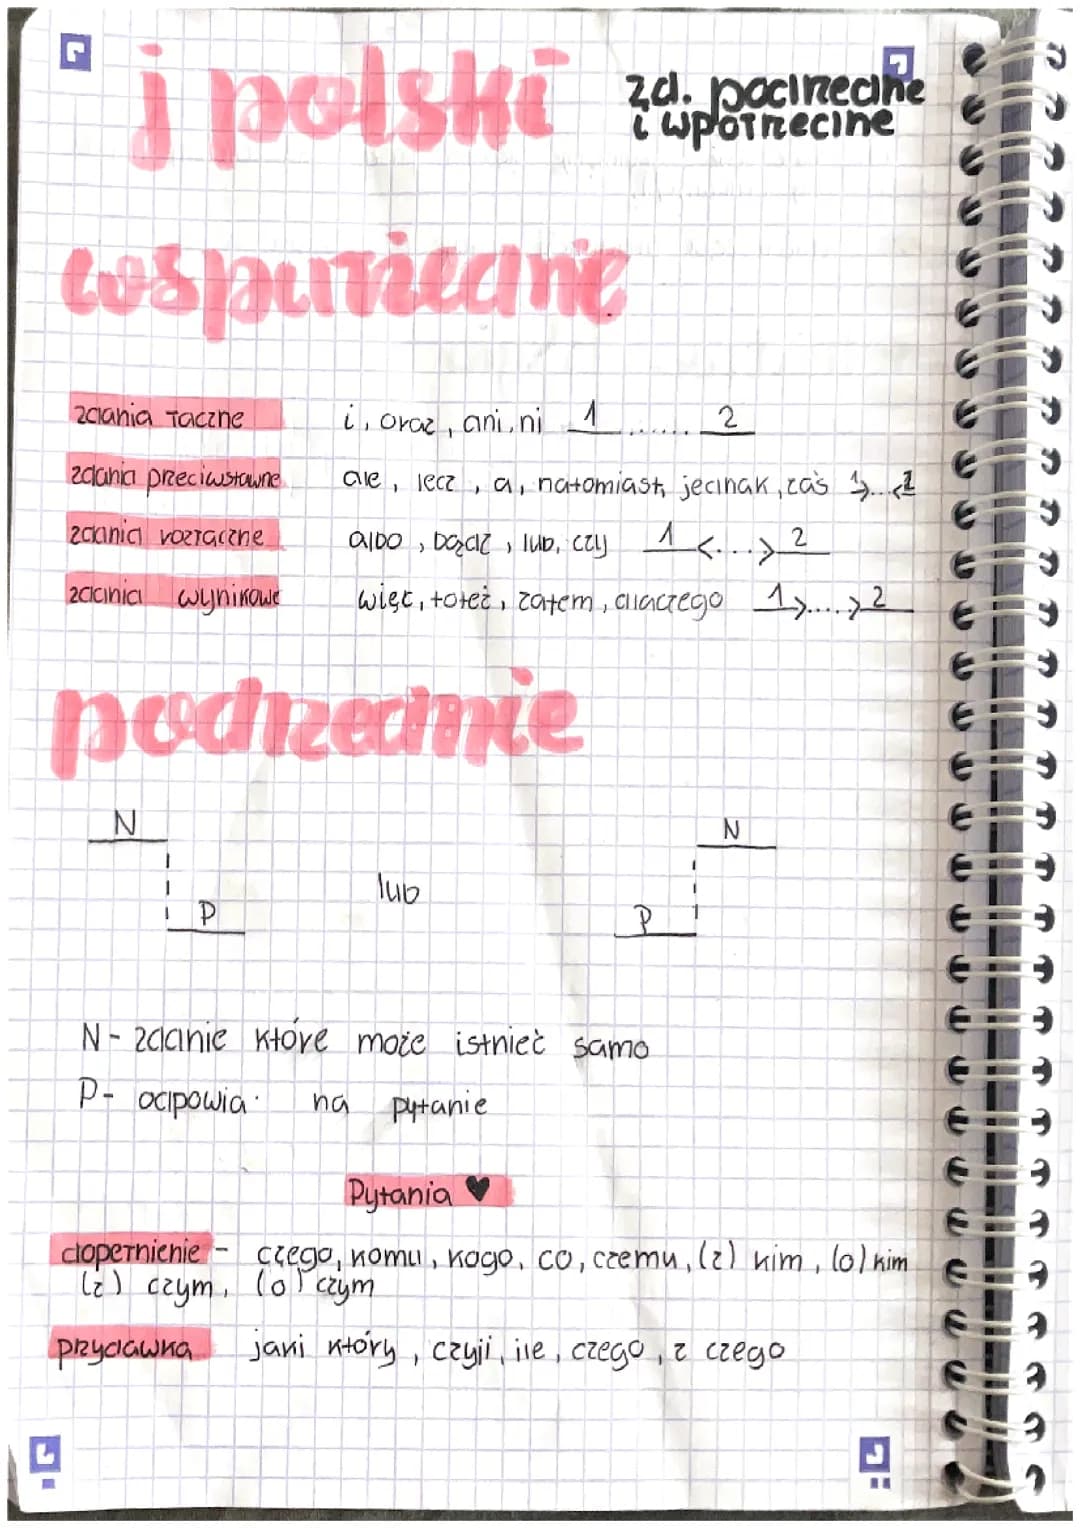 j polski
zd. podrzędne
i wpółrzędne
współrzędne
zdania łączne i, oraz, ani, ni 1 ...... 2
zdania przeciwstawne ale, lecz, a, natomiast, jednak, zaś 1>...<2
zdania rozłączne albo, bądź, lub, czy 1 <...> 2
zdania wynikowe więc, toteż, zatem, dlaczego 1>....>2
podrzędnie
N N
lub
P P
N - zdanie które może istnieć samo
P - odpowia na pytanie
Pytania ♥
dopełnienie - czego, komu, kogo, co, czemu, (z) kim, (o) kim
(z) czym, (o) czym
przydawka jaki który, czyji, ile, czego, z czego